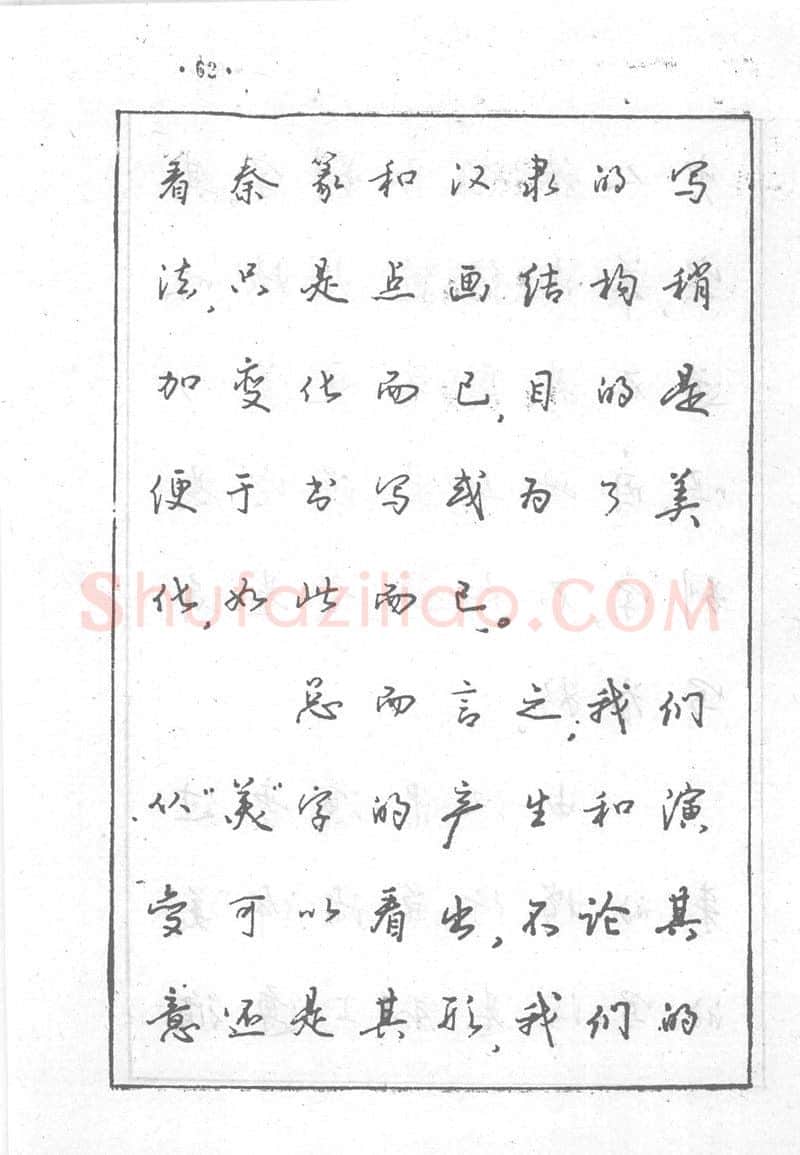 ·62·
着秦篆和汉隶的写
法,只是点画结构稍
加变化而已,目的是
便于书写或为了美
化,如此而已。
Shufaziliao.COM
总而言之,我们
从"美"字的产生和演
变可以看出,不论其
意还是其形,我们的